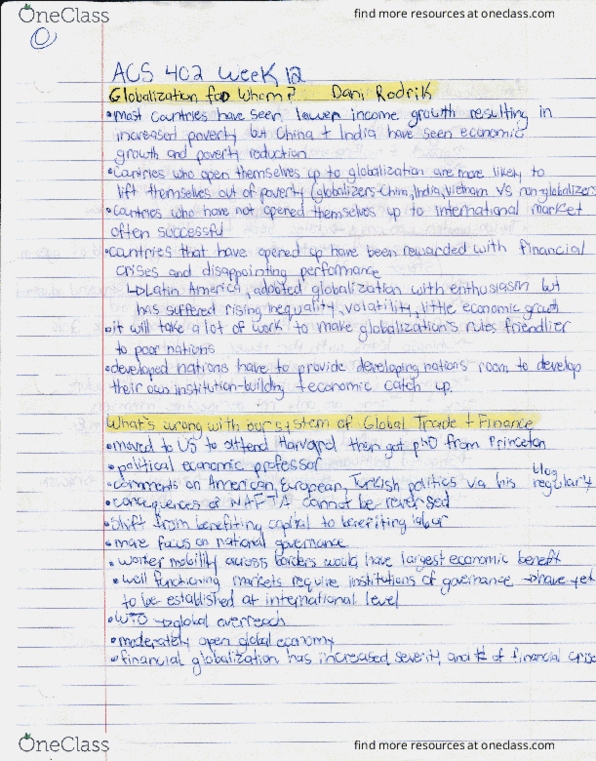 OneClass
find more resources at oneclass.com
ACS 402 Week 12
Globalization for Whom? Dani Rodrik
•most countries have seen lower income growth resulting in
increased poverty but China + India have seen economic
growth and poverty reduction
•Countries who open themselves up to globalization are more likely to
lift themselves out of poverty (globalizers-China, India, Vietnam vs non-globalizers
•countries who have not opened themselves up to international market
often successful
•countries that have opened up have been rewarded with financial
crises and disappointing performance
↳Latin America, adopted globalization with enthusiasm but
has suffered rising inequality, volatility, little economic growth
•it will take a lot of work to make globalization's rules friendlier
to poor nations
•developed nations have to provide developing nations room to develop
their own institution-building + economic catch up.
What's wrong with our system of Global Trade + Finance
•moved to US to attend Harvard then got phD from Princeton
•political economic professor
•comments on American, European, Turkish politics via his blog regularly
•consequences of NAFTA cannot be reversed
•shift from benefiting capital to benefiting labour
•more focus on national governance
•worker mobility across borders would have largest economic benefit
•well functioning markets require institutions of governance →have yet
to be established at international level
•WTO →global overreach
•moderately open global economy
•financial globalization has increased severity and of financial crise
OneClass
find more resources at oneclass.com